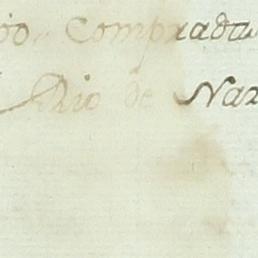 Compradu
Rio de Nar